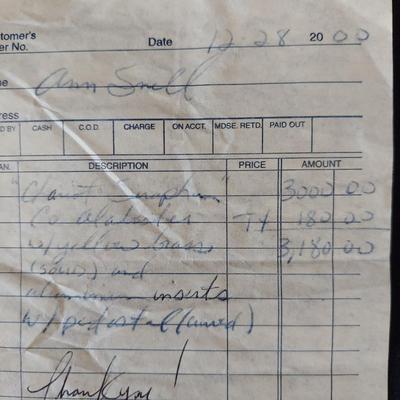 tomer's
er No.
Date 12-28 2000
me Ann Snell
dress
D BY CASH C.O.D. CHARGE ON ACCT. MDSE. RETD. PAID OUT
AN. DESCRIPTION PRICE AMOUNT
" " 3000 00
TX 180 00
w/yellow brass 3,180 00
and
aluminum inserts
w/pedestal
Thank you!